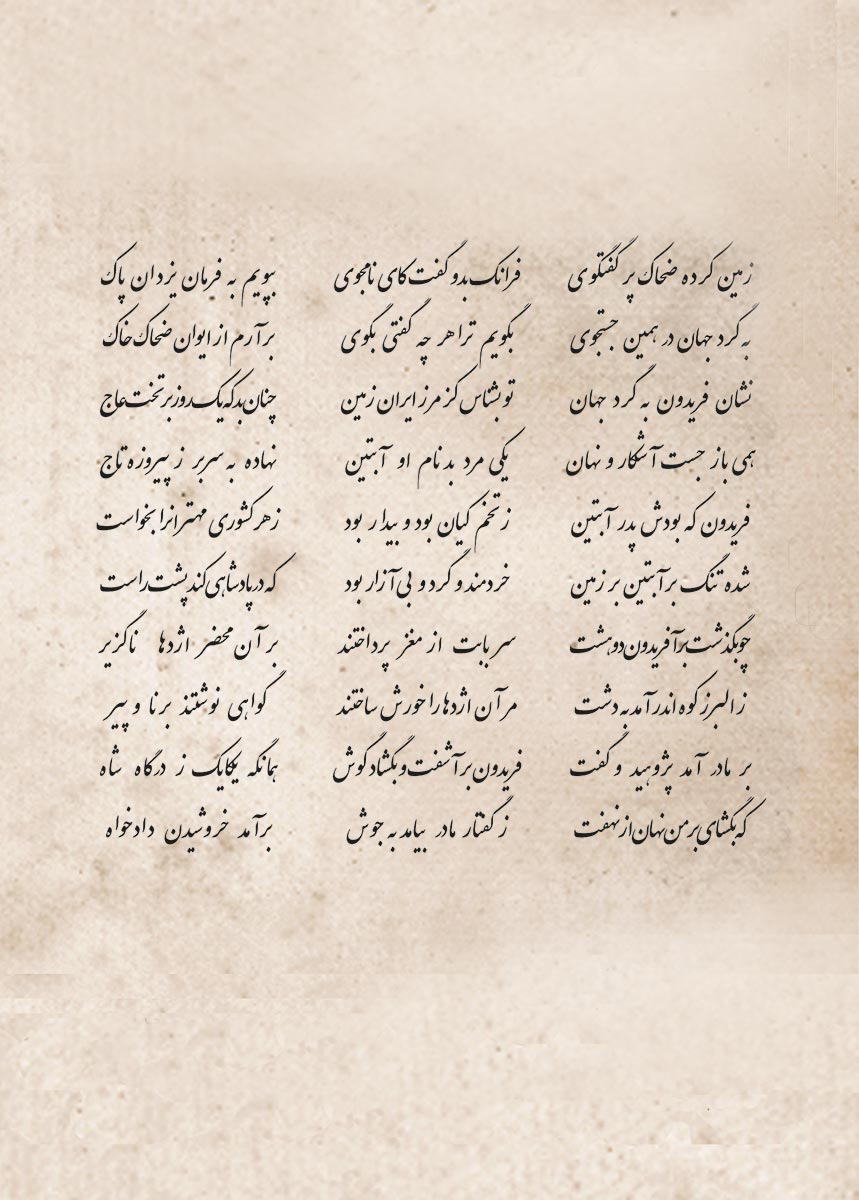 زمین کرده ضحاک پر گفتگوی
به گرد جهان در همین جستجوی
نشان فریدون به گرد جهان
همی باز جست آشکار و نهان
فریدون که بودش پدر آبتین
شده تنگ بر آبتین بر زمین
چو بگذشت بر آفریدون دو هشت
ز البرز کوه اندر آمد به دشت
بر مادر آمد پژوهید و گفت
که بگشای بر من نهان از نهفت
فرانک بدو گفت کای نامجوی
بگویم ترا هر چه گفتی بگوی
تو بشناس کز مرز ایران زمین
یکی مرد بد نام او آبتین
ز تخم کیان بود و بیدار بود
خردمند و گرد و بی آزار بود
سر بابت از مغز پرداختند
مر آن اژدها را خورش ساختند
فریدون بر آشفت و بگشاد گوش
ز گفتار مادر بیامد به جوش
بپویم به فرمان یزدان پاک
بر آرم از ایوان ضحاک خاک
چنان بد که یک روز بر تخت عاج
نهاده به سر بر ز پیروزه تاج
ز هر کشوری مهترانرا بخواست
که در پادشاهی کند پشت راست
بر آن محضر اژدها ناگزیر
گواهی نوشتند برنا و پیر
همانگه یکایک ز درگاه شاه
برآمد خروشیدن دادخواه